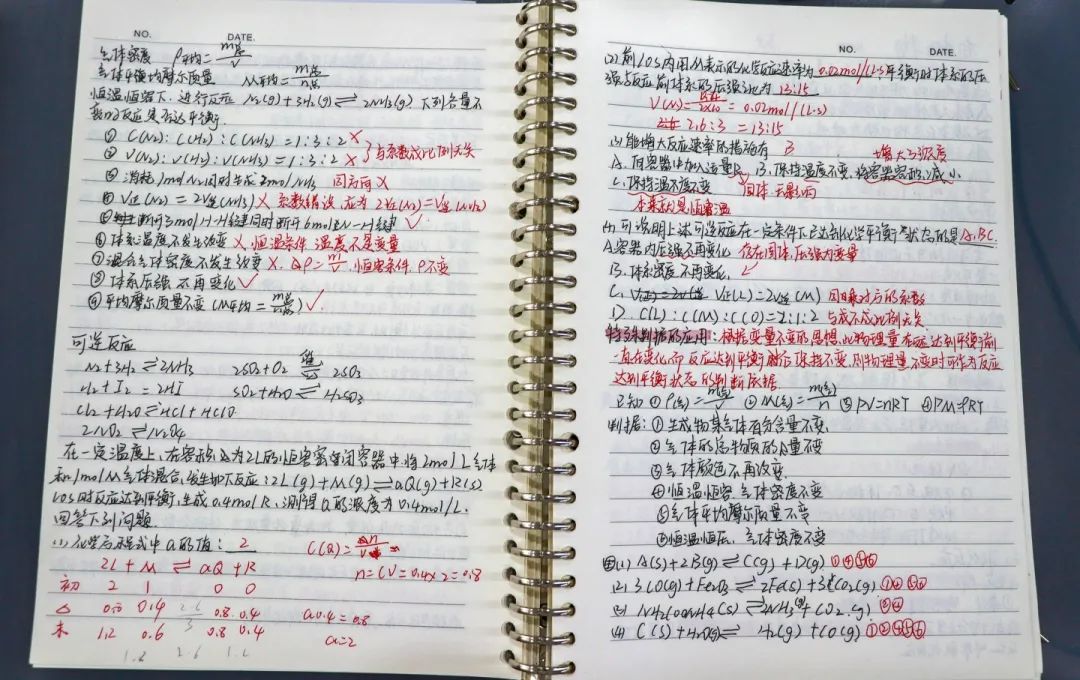 NO. DATE.
气体密度 ρ平均=m总/V
气体平均摩尔质量 M平均=m总/n总
恒温恒容下,进行反应 N₂(g)+3H₂(g)⇌2NH₃(g) 下列各量不
变可反应是否达平衡.
① C(N₂):C(H₂):C(NH₃)=1:3:2 ×
② V(N₂):V(H₂):V(NH₃)=1:3:2 × 与系数成比例无关
③ 消耗1mol N₂同时生成2mol NH₃ 同方向 ×
④ V正(N₂)=2V逆(NH₃) × 系数错误 应为2V正(N₂)=V逆(NH₃)
⑤ 断开3mol H-H键同时断开6mol N-H键 ✓
⑥ 体系温度不发生改变 ×. 恒温条件 温度不是变量
⑦ 混合气体密度不发生改变 ×. ρ=m/V 恒容条件 ρ不变
⑧ 体系压强 不再变化 ✓
⑨ 平均摩尔质量不变 (M平均=m总/n总) ✓.
可逆反应
N₂+3H₂⇌2NH₃ 2SO₂+O₂⇌2SO₃
H₂+I₂=2HI SO₂+H₂O⇌H₂SO₃
Cl₂+H₂O⇌HCl+HClO
2NO₂⇌N₂O₄
在一定温度上,在容积为2L的恒容密闭容器中,将2mol L气体
和1mol M气体混合,发生如下反应:2L(g)+M(g)⇌aQ(g)+R(s)
10s时反应达到平衡,生成0.4mol R,测得Q的浓度为0.4mol/L.
回答下列问题.
(1) 化学方程式中a的值: 2 C(Q)=Δn/V
2L + M ⇌ aQ + R n=CV=0.4×2=0.8
初 2 1 0 0
△ 0.8 0.4 0.8 0.4 a0.4=0.8
末 1.2 0.6 0.8 0.4 a=2
NO. DATE.
(2) 前10s内用M表示的化学反应速率为 0.02mol/(L·s) 平衡时体系的压
强与反应前体系的压强之比为 13:15
V(M)=0.4/2×10=0.02mol/(L·s)
2.6:3=13:15
(3) 能增大反应速率的措施有 B 增大了浓度
A. 向容器中加入适量R B. 保持温度不变,将容器容积减小
C. 保持温度不变 固体 无影响
本来就是恒容温
(4) 可说明上述可逆反应在一定条件下已达到化学平衡状态的是 A.BC
A. 容器内压强不再变化 存在固体,压强为变量
B. 体系密度 不再变化. ✓
C. V正(L)=2V逆(M) 因乘对应的系数
D. C(L):C(M):C(Q)=2:1:2 与成不成比例无关
特殊判据的应用:根据变量不变的思想,此物理量在达到平衡前
一直在变化而反应达到平衡后保持不变,则物理量不变时可作为反应
达到平衡状态的判断依据
已知 ① ρ(g)=m(g)/V ② M(g)=m(g)/n ③ PV=nRT ④ PM=ρRT
判据:① 生成物某气体百分含量不变.
② 气体的总物质的量不变
③ 气体颜色不再改变
④ 恒温恒容 气体密度不变
⑤ 气体平均摩尔质量不变
⑥ 恒温恒压, 气体密度不变
(1) A(s)+2B(g)⇌C(g)+D(g) ①④⑤⑥
(2) 3CO(g)+Fe₂O₃⇌2Fe(s)+3CO₂(g) ①④⑤⑥
(3) NH₂COONH₄(s)⇌2NH₃(g)+CO₂(g) ②④
(4) C(s)+H₂O(g)⇌H₂(g)+CO(g) ①②④⑤⑥